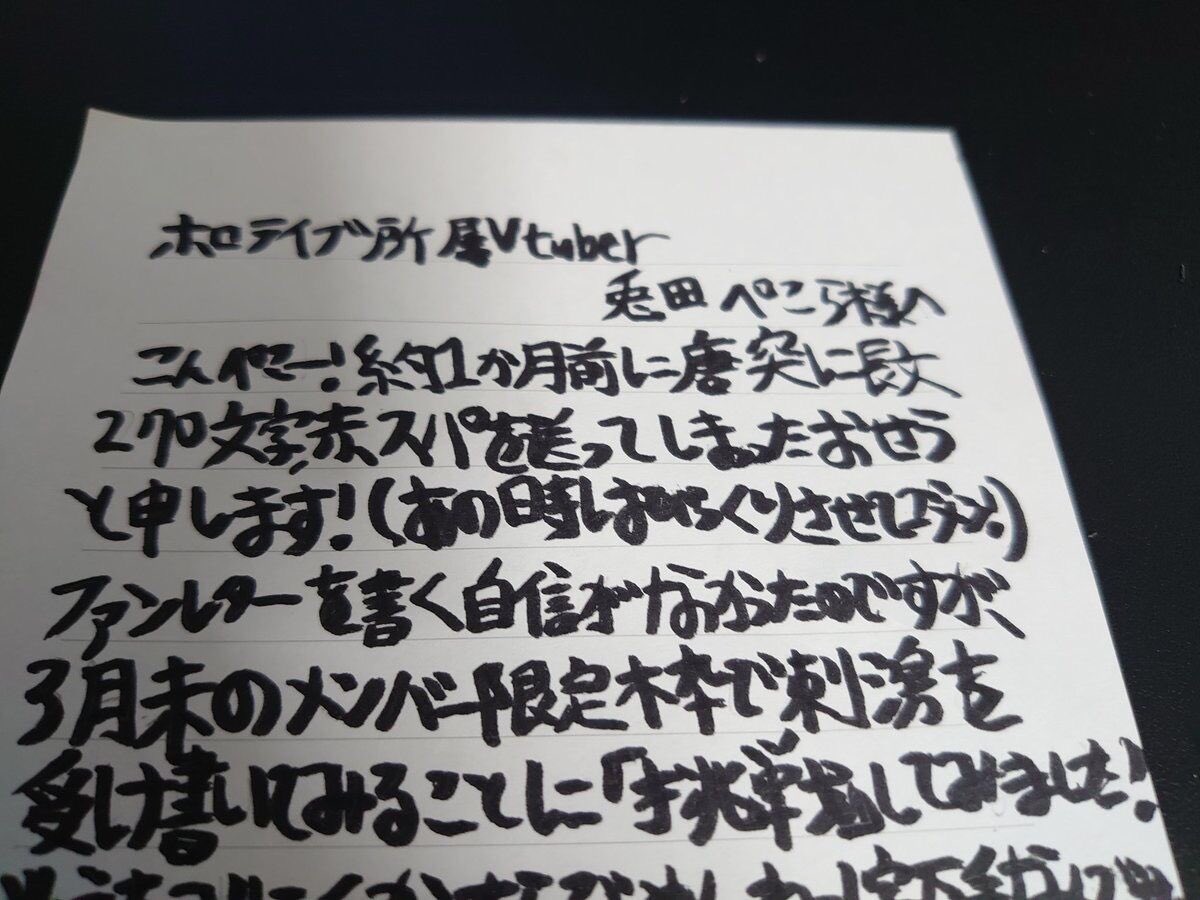 ホロライブ所属Vtuber
兎田ぺこら様へ
こんぺこー!約1か月前に唐突に長文
270文字赤スパを送ってしまったおせう
と申します!(あの時はびっくりさせてゴメンッ!)
ファンレターを書く自信がなかったのですが、
3月末のメンバー限定枠で刺激を
受け書いてみることに「挑戦」してみました!